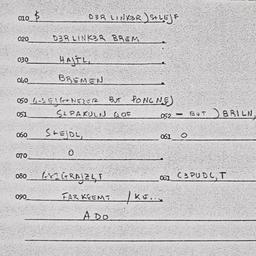 010 $ D3R LINK3R) S+LEJF
020 D3R LINK3R BREM
030 HAJTL,
040 BREMEN
050 BUT FONCNE)
051 SLPAKULN GOF 052 - BUT ) BRILN,
060 S+EJDL, 061 0
070 0
080 GRAJZL,T 081 C3PUDL,T
090 FARKGEMT / KE...
ADO